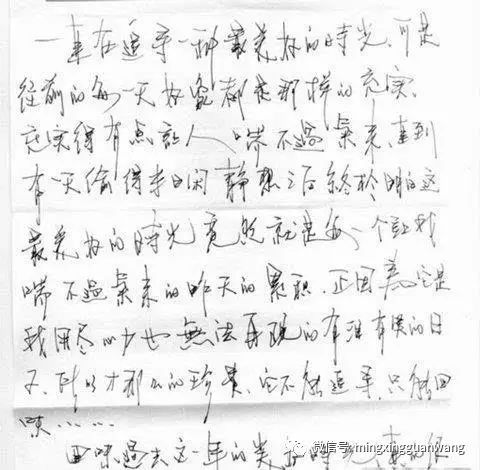 一直在追寻一种最美好的時光,可是
從前的每一天好象都是那樣的充实,
充实得有点讓人喘不過氣来,直到
有一天偷得半日闲静想之后終於明白这
最美好的時光竟然就是每一个讓我
喘不過氣来的昨天的累积,正因為它是
我用尽心力也無法再現的有泪有笑的日
子,所以才那么的珍貴,它不能追寻,只能回
味……
回味過去这一年的美好時光
微信号:mingxingguanwang